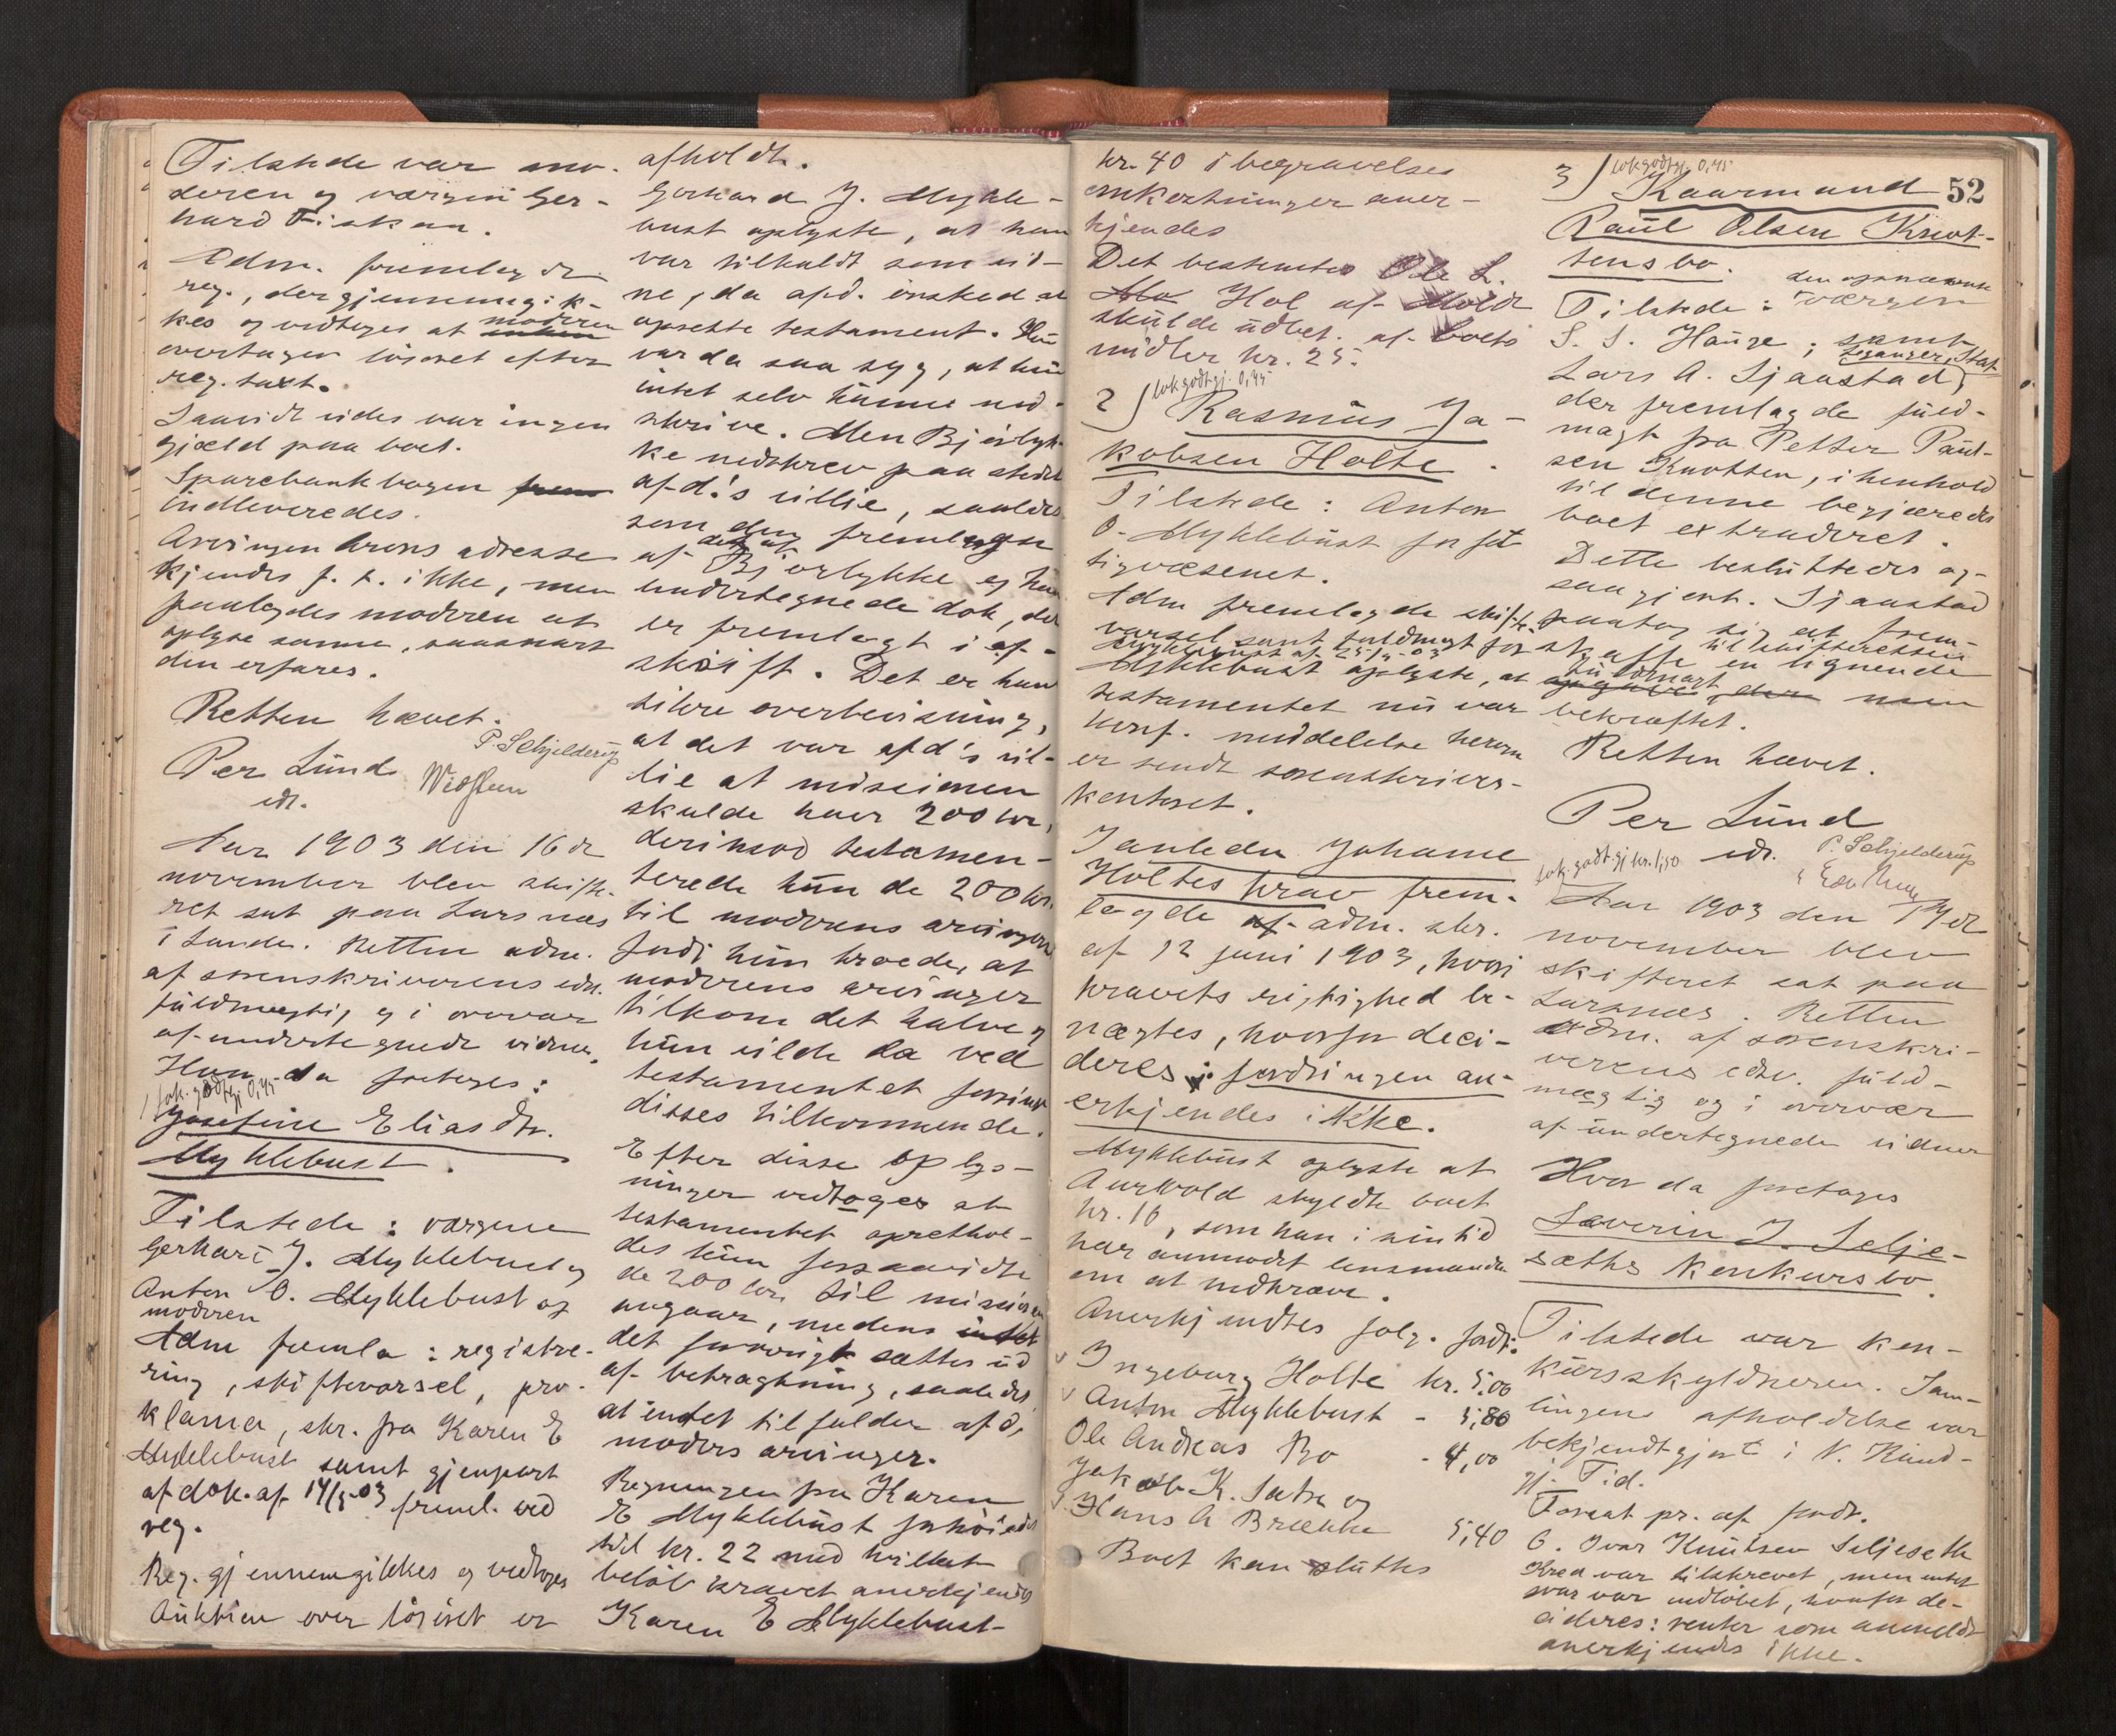 Tilstede var mo-
deren og værgen Ger-
hard Fiskaa.
Adm. fremlagde
reg., der gjennemgik-
kes og vedtoges at moderen
overtager løsøret efter
reg. taxt.
Saavidt vides var ingen
gjæld paa boet.
Sparebankbogen frem
indleveredes.
Arvingen Arens adresse
kjendes p. t. ikke, men
paalagdes moderen at
oplyse samme, saasnart
den erfares.
Retten hævet.
P. Schjelderup
Per Lund
edt.
Aar 1903 den 16de
november blev skifte-
ret sat paa Larsnæs
i Sande. Retten adm.
af sorenskriverens edsv.
fuldmægtig og i overvær
af undertegnede vidner.
Hvor da foretoges:
1) lok.godtgj 0,45
Josefine Eliasdtr.
Myklebust.
Tilstede: værgerne
Gerhard J. Myklebust og
Anton O. Myklebust og
moderen
Adm fremla: registre-
ring, skiftevarsel, pro-
klama, skr. fra Karen E
Myklebust samt gjenpart
af dok. af 14/5-03 freml. ved
reg.
Reg. gjennemgikkes og vedtoges
Auktion over løsøret er
afholdt.
Gerhard J. Mykle-
bust oplyste, at han
var tilkaldt som vid-
ne, da afd. ønsked at
opsette testament. Hun
var da saa syg, at hun
intet selv kunne ned-
skrive. Men Bjørlyk-
ke nedskrev paa stedet
afd.'s villie, saaledes
som den fremlagte
af Bjørlykke og ham
undertegnede dok, der
er fremlagt i af-
skrift. Det er hans
sikre overbevisning,
at det var afd's vil-
lie at missionen
skulde have 200 kr,
derimod testamen-
terede hun de 200 kr.
til moderens arvinger
fordi hun troede, at
moderens arvinger
tilkom det halve og
hun vilde da ved
testamentet forøge
disses tilkommende.
Efter disse oplys-
ninger vedtoges at
testamentet oprethol-
des kun forsaavidt
de 200 kr. til missionen
angaar, medens intet
det forøvrigt sættes ud
af betragtning, saaledes
at intet tilfalder afd,
moders arvinger.
Regningen fra Karen
E Myklebust forhøiedes
til kr. 22 med hvilket
beløb kravet anerkjendes
Karen E Myklebust-
kr. 40 i begravelses
omkostninger aner-
kjendes
Det bestemtes Ole L.
Mo Hol af Mold
skulde udbet. af boets
midler kr. 25.
2) lokgodtgj. 0,45
Rasmus Ja-
kobsen Holte.
Tilstede: Anton
O. Myklebust for fat-
tigvæsenet.
Adm fremlagde skifte-
varsel samt fuldmagt for
Myklebust af 25/4-03
Myklebust oplyste, at
testamentet nu var
konf. meddelelse herom
er sendt sorenskriver-
kontoret.
Tanledn Johanne
Holtes krav frem-
lagde af adm. skr.
af 12 juni 1903, hvori
kravets rigtighed be-
nægtes, hvorfor deci-
deres: fordringen an-
erkjendes ikke.
Myklebust oplyste at
Aurvold skyldte boet
kr. 10, som han i sin tid
har anmodet lensmanden
om at indkræve.
Anerkjendtes følg. fordr.
v Ingeborg Holte kr. 5,00
v Anton Myklebust - 5,80
Ole Andreas Bø - 4,00
Jakob K. Sætre og
v Hans A Brække 5,40
Boet kan sluttes
52
3) lokgodtgj. 0,45
Kaarmand
Paul Olsen Knot-
tens bo.
Tilstede: den opnævnte
værgen
S. S. Hauge; samt
Lars A. Sjaastad,
der fremlagde fuld-
magt fra Petter Paul-
sen Knotten, i henhold
til denne begjæredes
boet extraderet.
Dette besluttedes og-
saa gjort. Sjaastad
paatog sig at frem-
skaffe til skifteretten
en lignende
fuldmagt,
bekræftet.
Retten hævet.
Per Lund
edt. P. Schjelderup
lok.godtgj kr. 1,50
Aar 1903 den 17de
november blev
skifteret sat paa
Larsnæs. Retten
adm. af sorenskri-
verens edsv. fuld-
mægtig og i overvær
af undertegnede vidner
Hvor da foretoges
Severin J. Selje-
sæths konkursbo.
Tilstede var kon-
kursskyldneren. Sam-
lingens afholdelse var
bekjendtgjort i N. Kund-
gj. Tid.
Forsat pr. af fordr.
6. Ivar Knutsen Seljeseth
Kred var tilskrevet, men intet
svar var indløbet, hvorfor de-
cideres: renter som anmeldt
anerkjendes ikke.